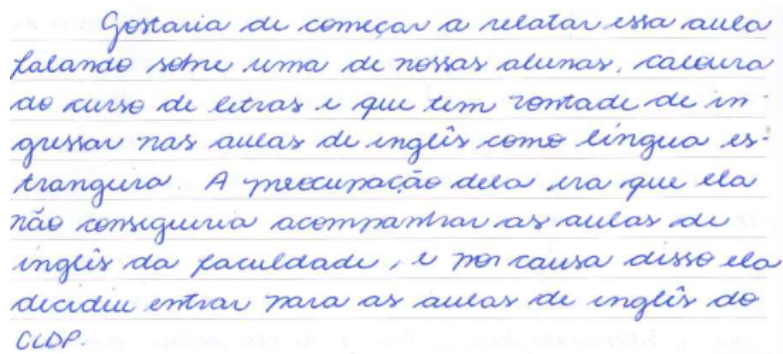 Gostaria de começar a relatar essa aula
falando sobre uma de nossas alunas, caloura
do curso de letras e que tem vontade de in-
gressar nas aulas de inglês como língua es-
trangeira. A preocupação dela era que ela
não conseguiria acompanhar as aulas de
inglês da faculdade, e por causa disso ela
decidiu entrar para as aulas de inglês do
CLDP.